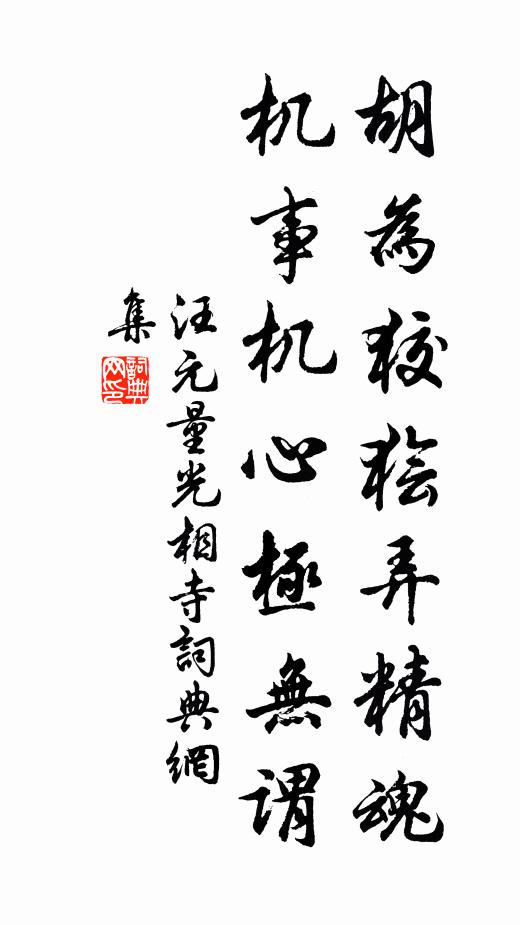 胡為狡獪弄精魂
机事机心極無謂
汪元量光相寺詞典網
集
詞典
网印